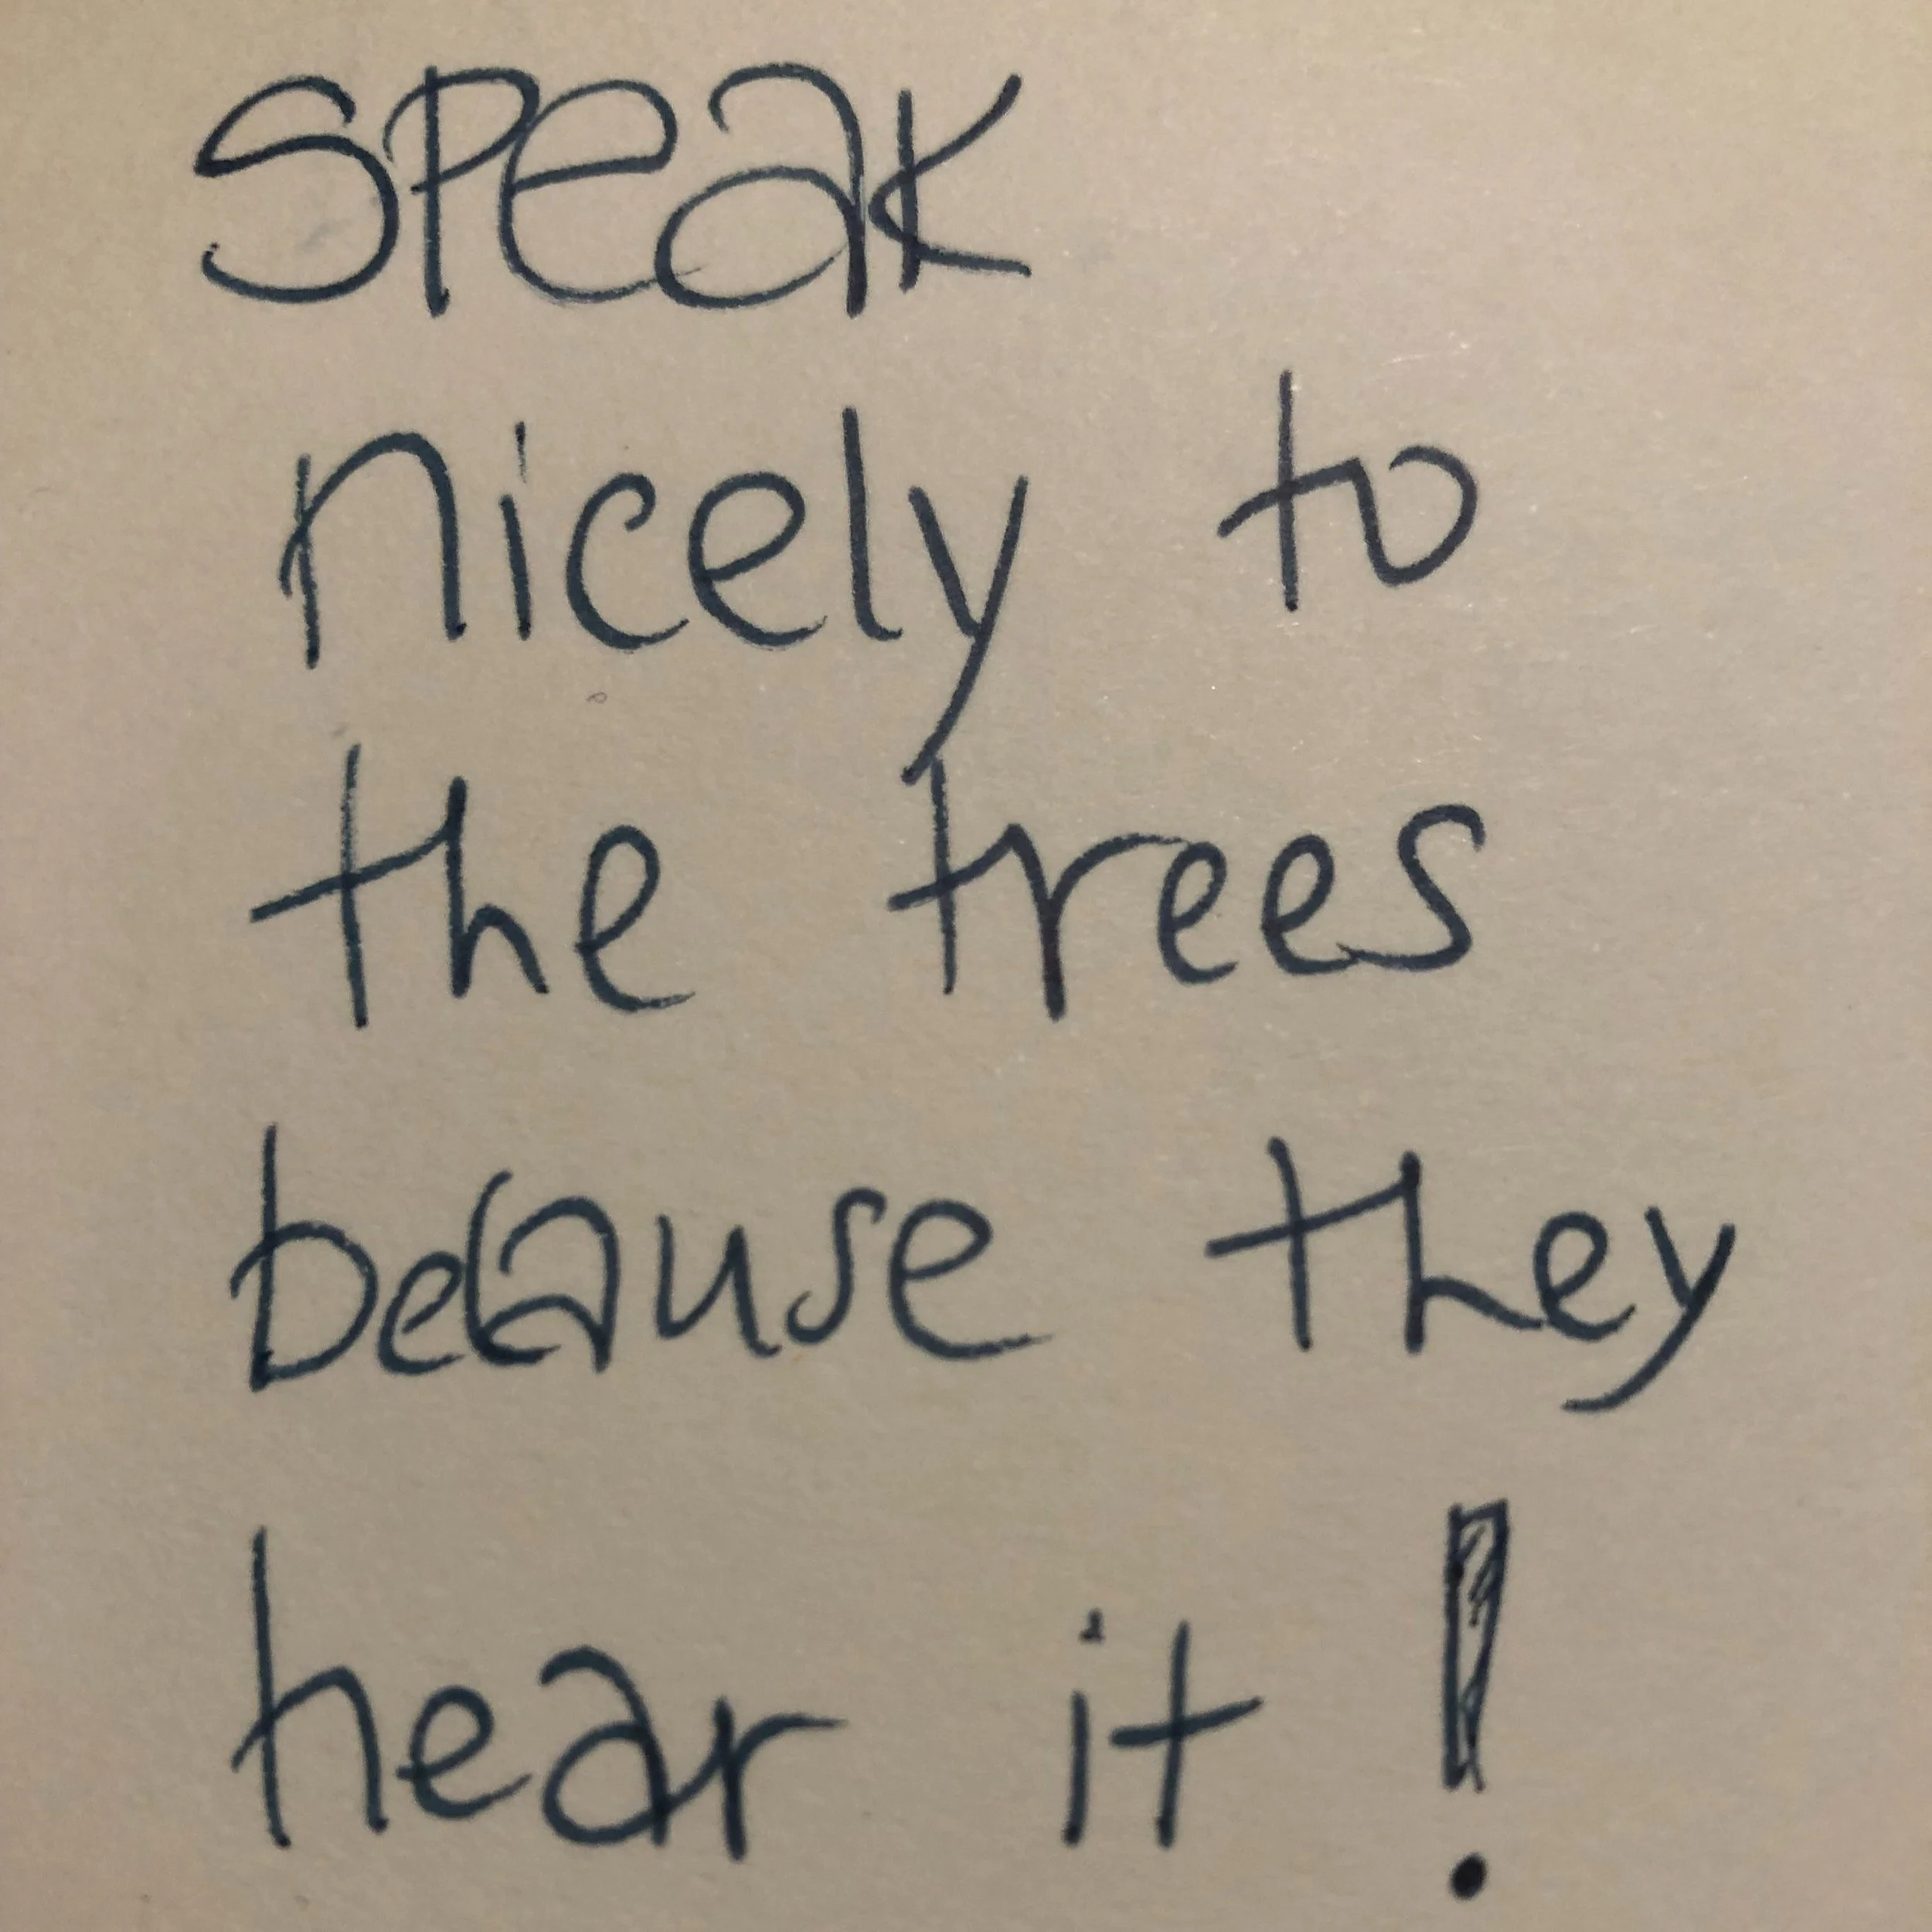 Speak
nicely to
the trees
because they
hear it!